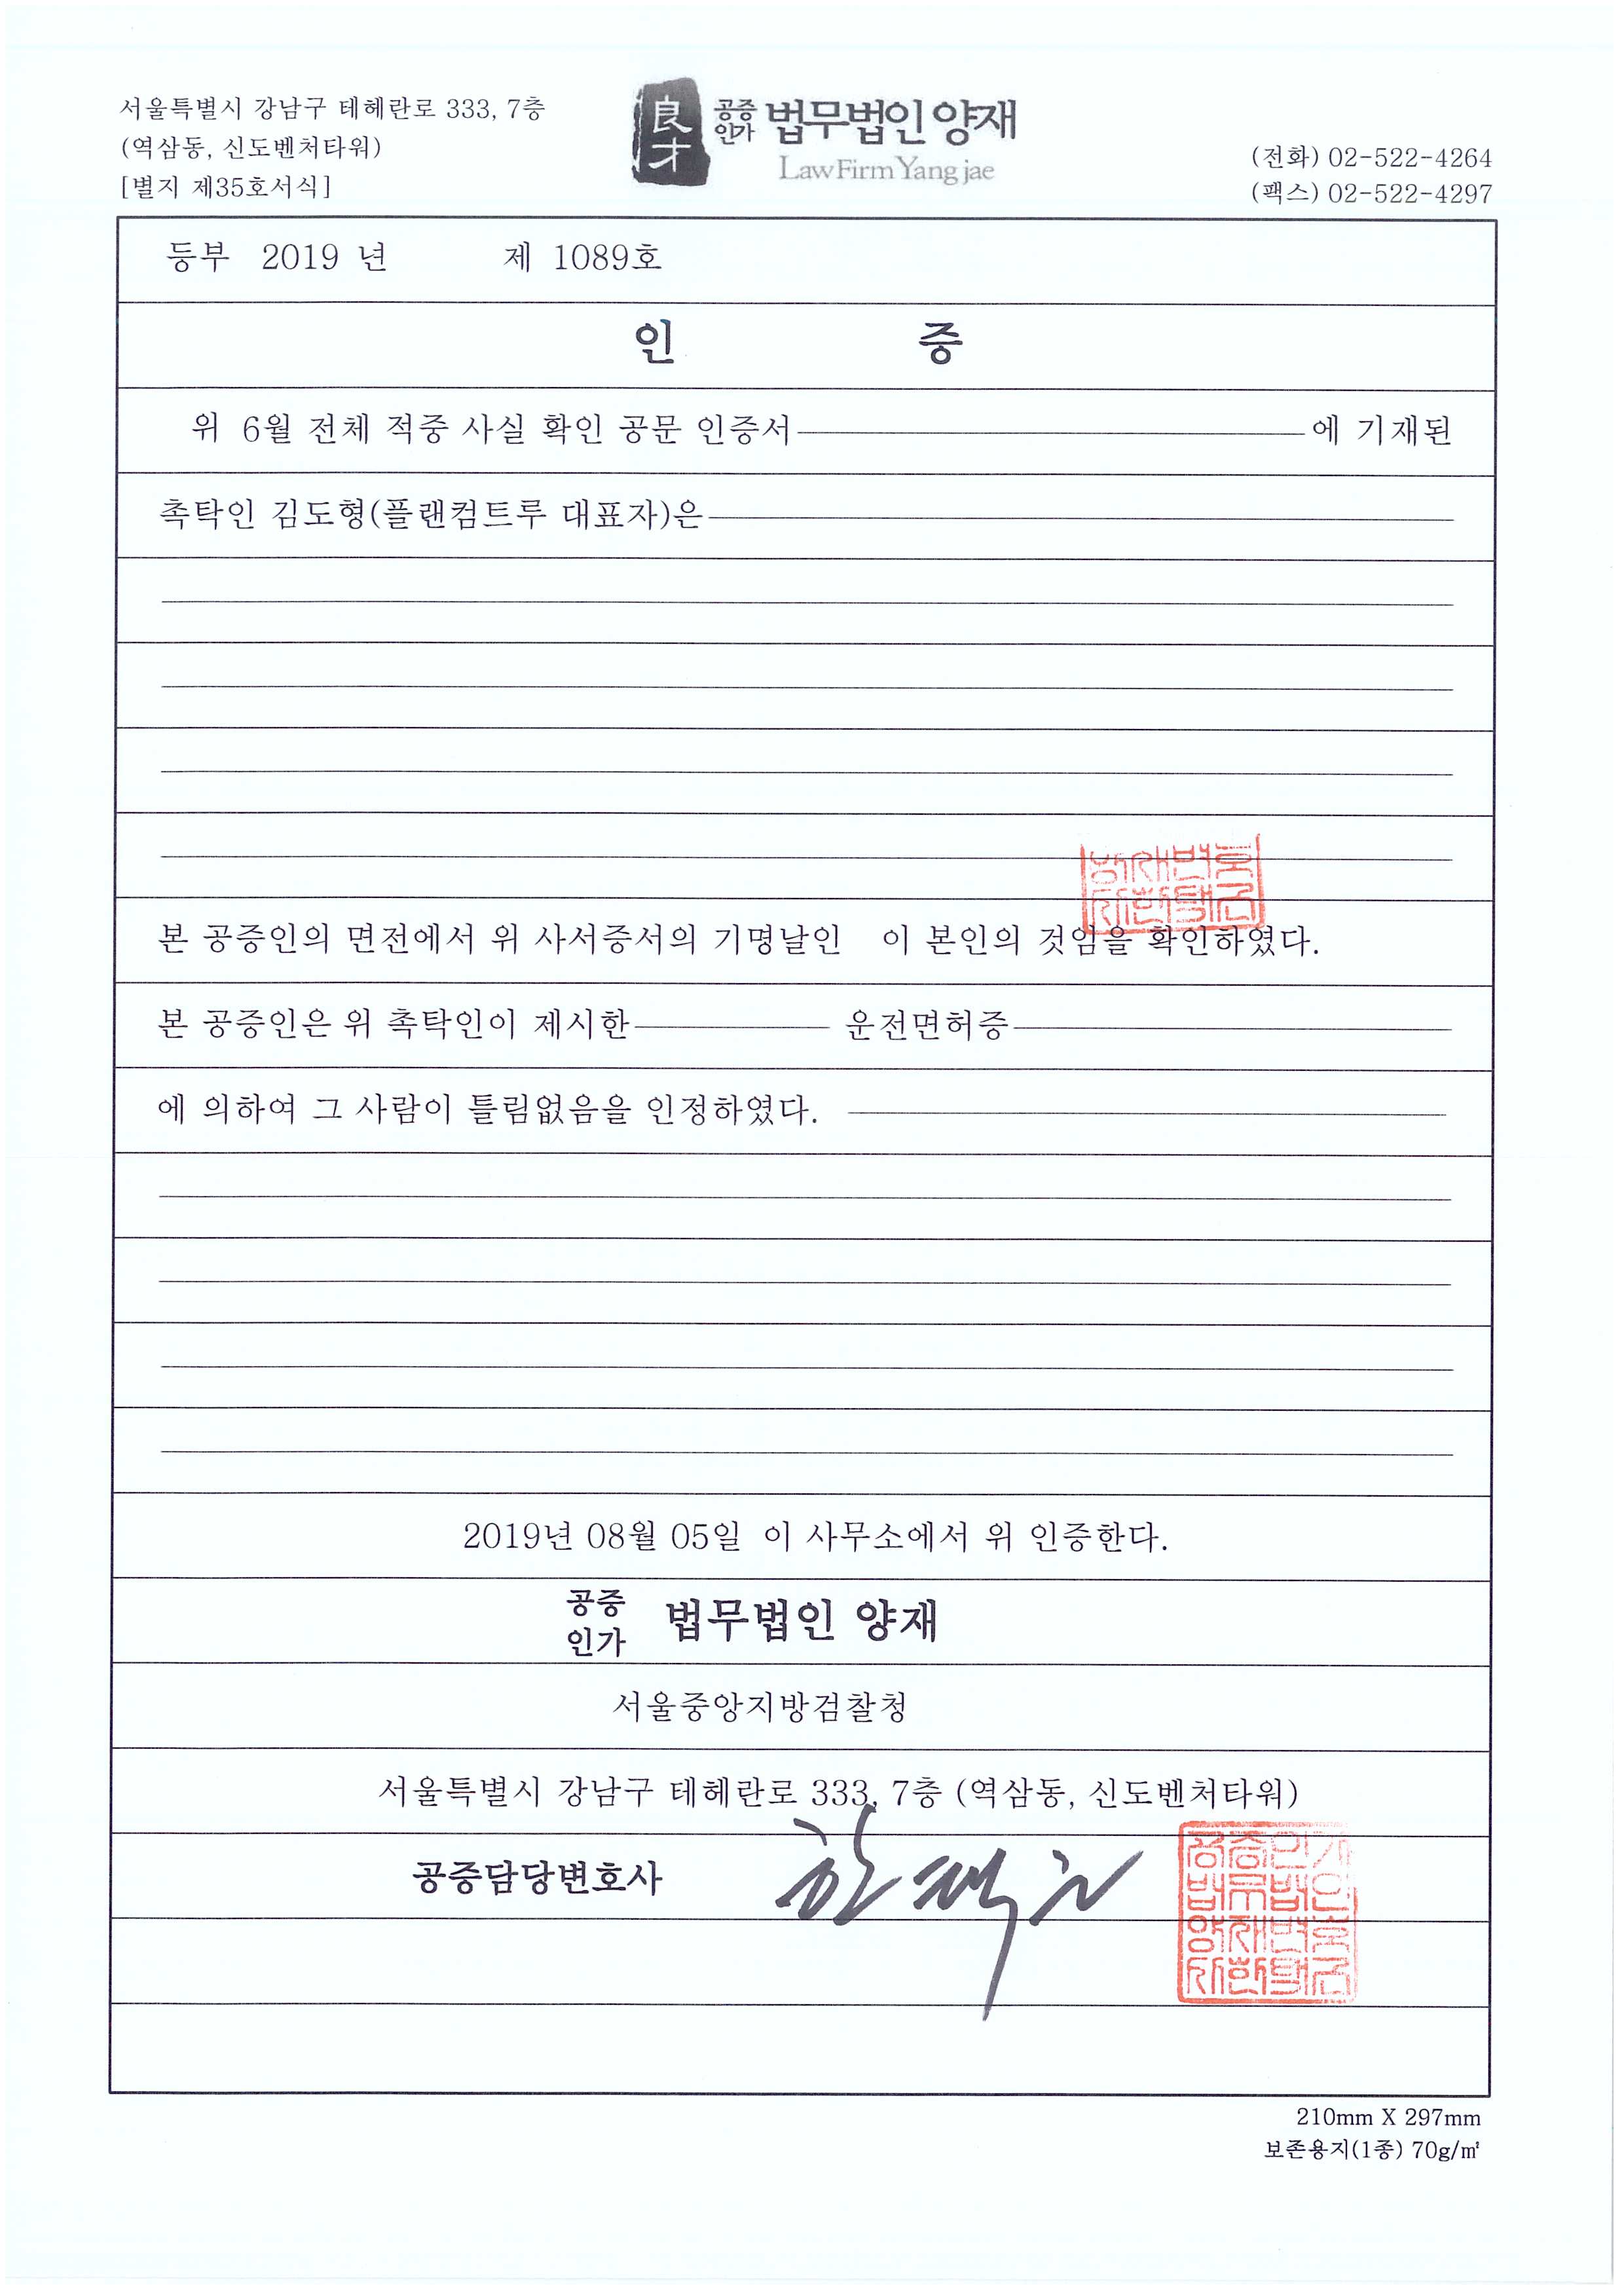 서울특별시 강남구 테헤란로 333, 7층
(역삼동, 신도벤처타워)
[별지 제35호서식]
良才
공증인가 법무법인 양재
Law Firm Yang jae
(전화) 02-522-4264
(팩스) 02-522-4297
등부 2019 년 제 1089호
인 증
위 6월 전체 적중 사실 확인 공문 인증서 에 기재된
촉탁인 김도형(플랜컴트루 대표자)은
본 공증인의 면전에서 위 사서증서의 기명날인 이 본인의 것임을 확인하였다.
본 공증인은 위 촉탁인이 제시한 운전면허증
에 의하여 그 사람이 틀림없음을 인정하였다.
2019년 08월 05일 이 사무소에서 위 인증한다.
공증인가 법무법인 양재
서울중앙지방검찰청
서울특별시 강남구 테헤란로 333, 7층 (역삼동, 신도벤처타워)
공증담당변호사
공증인가
법무법인
양재변호
210mm X 297mm
보존용지(1종) 70g/㎡